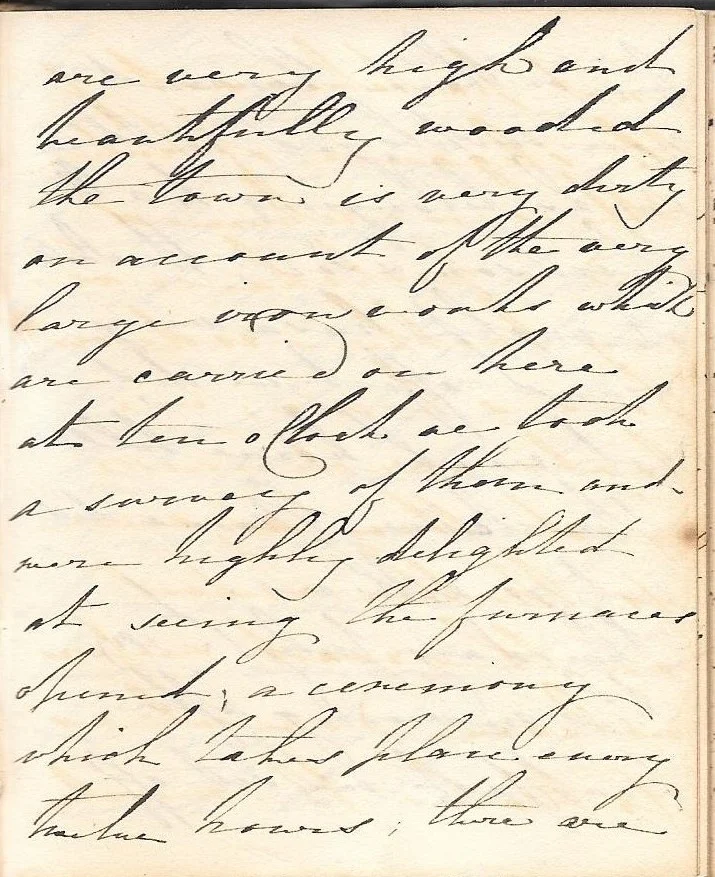 are very high and
beautifully wooded
the town is very dirty
on account of the very
large iron works which
are carried on here
at ten o'Clock we took
a survey of them and
were highly delighted
at seeing the furnaces
opened; a ceremony
which takes place every
twelve hours; there are